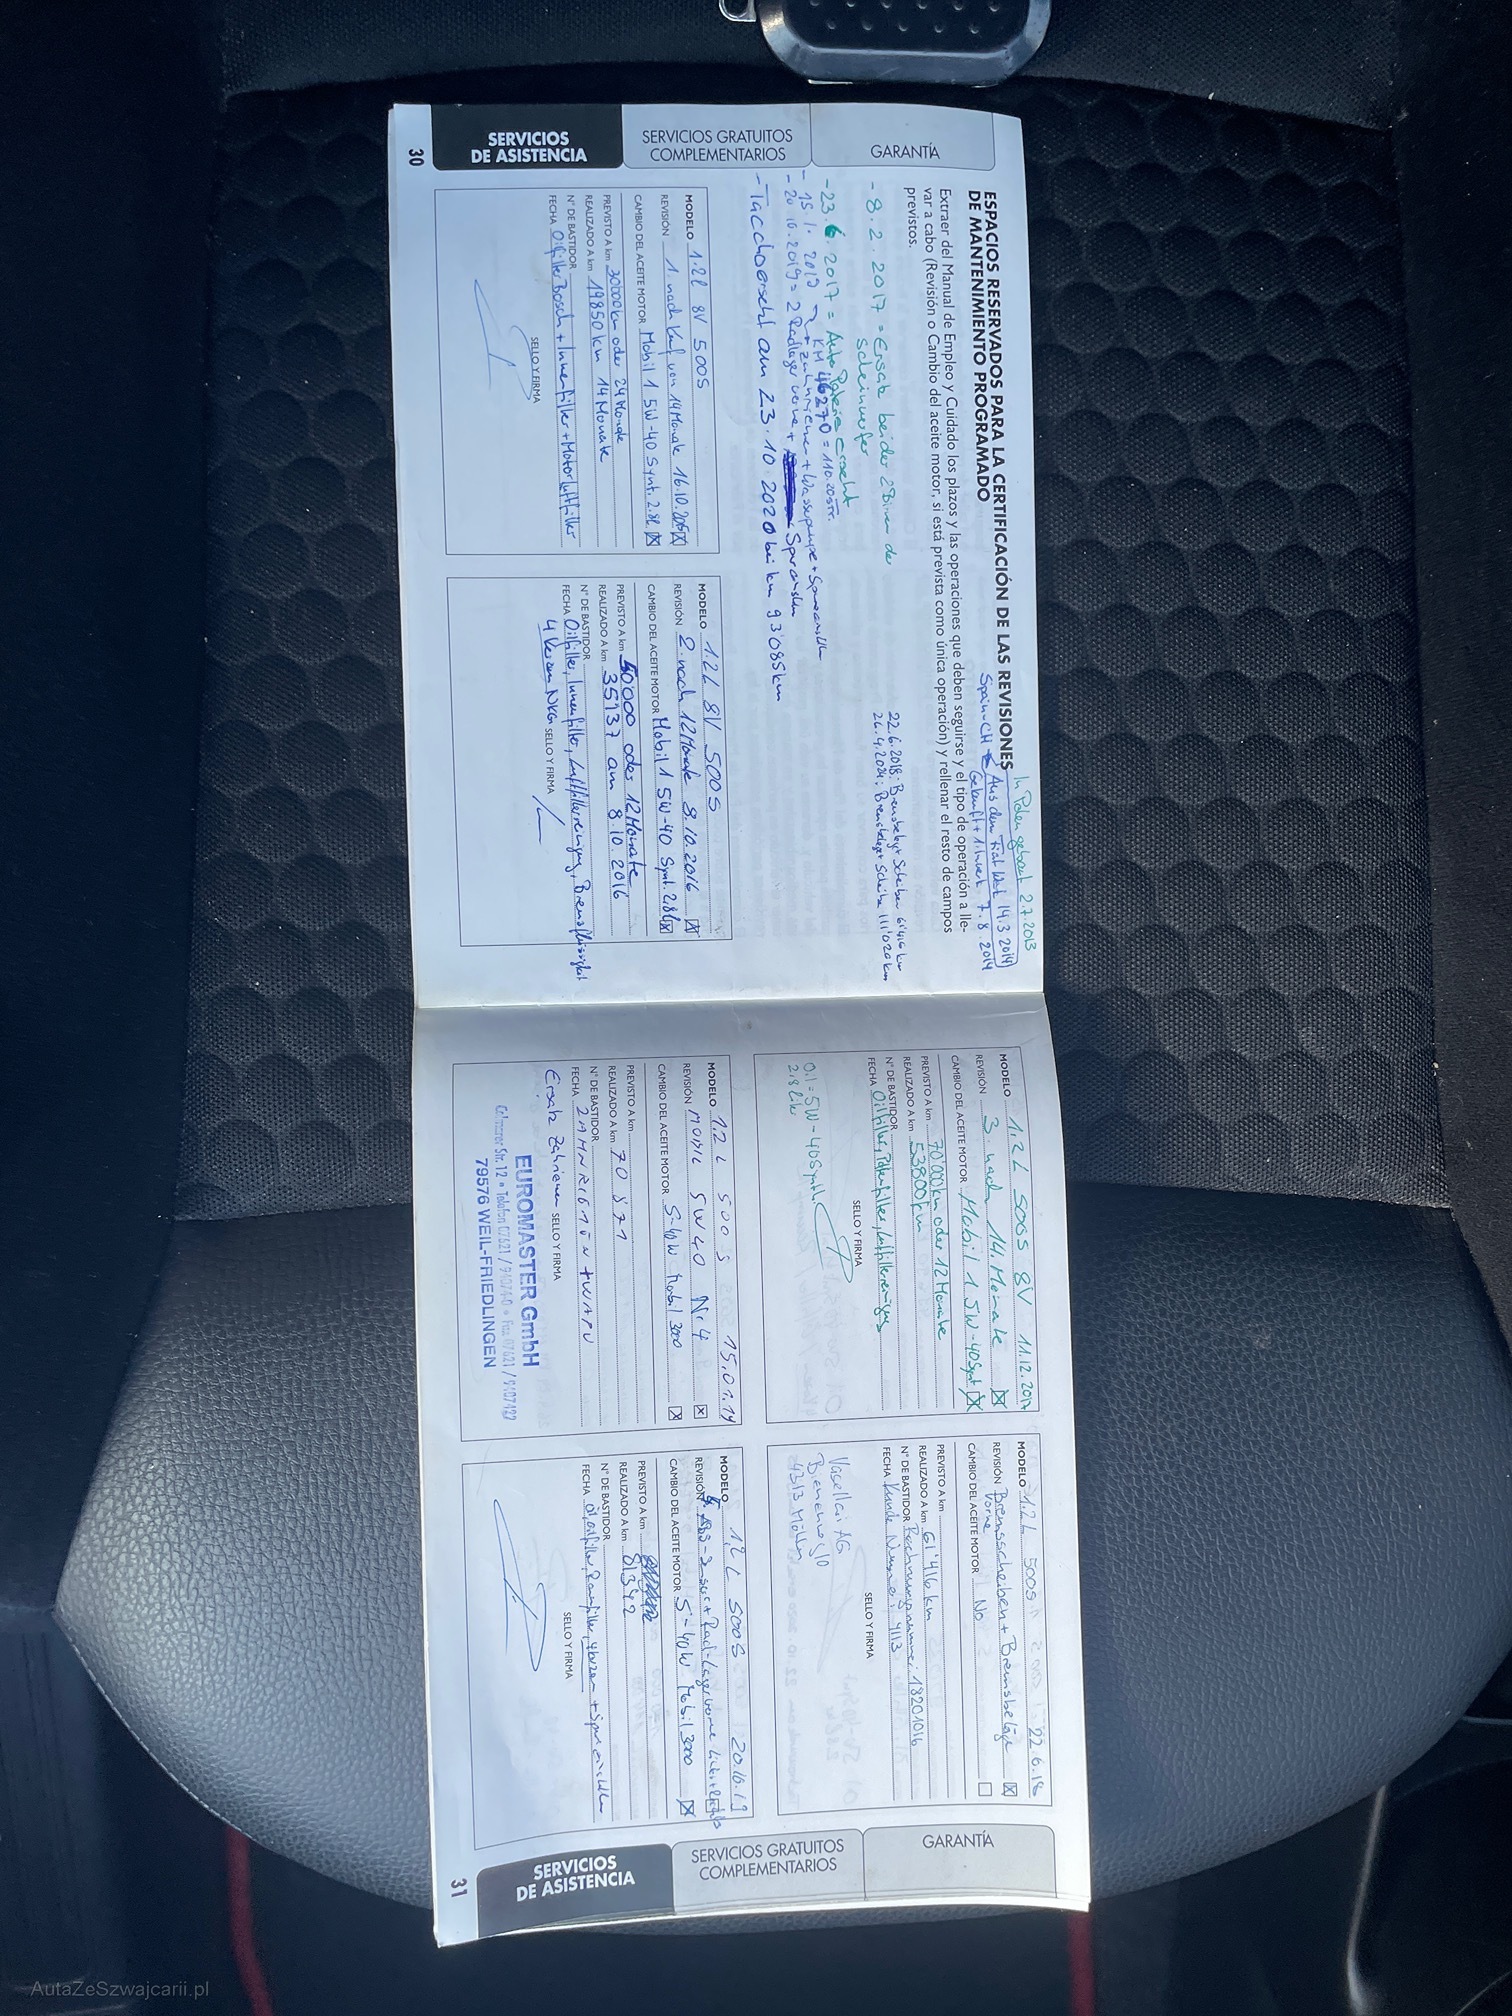 ESPACIOS RESERVADOS PARA LA CERTIFICACIÓN DE LAS REVISIONES
DE MANTENIMIENTO PROGRAMADO
In Polen gebaut 2.7.2013
Aus dem Fiat Werk 14.3.2014
Spain-CH
Gekauft + 7.8.2014
Extraer del Manual de Empleo y Cuidado los plazos y las operaciones que deben seguirse y el tipo de operación a lle-
var a cabo (Revisión o Cambio del aceite motor, si está prevista como única operación) y rellenar el resto de campos
previstos.
- 8.2.2017 = Ersatz beider der
Scheinwerfer
22.6.2018: Scheiben 61'416 km
26.4.2024: Scheibe 111'020 km
- 23.6.2017 = Auto Baterie ersetzt
KM 46270 = 110.20 Str.
- 15.1.2019 Zahnriemen + Wasserpumpe +
- 20.10.2019 = 2 Radlager vorne +
- Tacho ersetzt am 23.10.2020 bei km 93'085 km
MODELO 1.2L 8V 500S
REVISIÓN 1. nach Kauf von 14 Monate 16.10.2015
CAMBIO DEL ACEITE MOTOR Mobil 1 5W-40 Synt. 2.8L
PREVISTO A km 30000km oder 24 Monate
REALIZADO A km 19850 km 14 Monate
N° DE BASTIDOR
FECHA Oilfilter Bosch + Innenfilter + Motorluftfilter
SELLO Y FIRMA
MODELO 1.2L 8V 500S
REVISIÓN 2. nach 12 Monate 8.10.2016
CAMBIO DEL ACEITE MOTOR Mobil 1 5W-40 Synt. 2.8L
PREVISTO A km 50'000 oder 12 Monate
REALIZADO A km 35137 am 8.10.2016
N° DE BASTIDOR
FECHA Oilfilter, Innenfilter, Luftfilterreinigung, Bremsflüssigkeit
4 Kerzen NKG SELLO Y FIRMA
GARANTÍA
SERVICIOS GRATUITOS
COMPLEMENTARIOS
SERVICIOS
DE ASISTENCIA
30
MODELO 1.2L 500S 8V 11.12.2017
REVISIÓN 3. nach 14. Monate
CAMBIO DEL ACEITE MOTOR Mobil 1 5W-40 Synt
PREVISTO A km 70'000km oder 12 Monate
REALIZADO A km 53800 km
N° DE BASTIDOR
FECHA Oilfilter, Polenfilter, Luftfilterreinigung
SELLO Y FIRMA
5W-40 Synth.
2.8 Liter
MODELO 1.2L 500S 22.6.18
REVISIÓN Bremsscheiben + Bremsbeläge
Vorne
CAMBIO DEL ACEITE MOTOR No
PREVISTO A km
REALIZADO A km 61'416 km
N° DE BASTIDOR Rechnungsnummer: 18201016
FECHA Kunde Nummer: 4113
SELLO Y FIRMA
AG
4313 Möhlin
MODELO 1.2L 500S 15.01.19
REVISIÓN MOBIL 5W40 Nr 4
CAMBIO DEL ACEITE MOTOR 5-40W Mobil 3000
PREVISTO A km
REALIZADO A km 70 871
N° DE BASTIDOR
FECHA ZAHNRIEMEN + WAPU
Ersatz Zahriemen SELLO Y FIRMA
EUROMASTER GmbH
Colmarer Str. 12
79576 WEIL-FRIEDLINGEN
MODELO 1.2L 500S 20.10.19
REVISIÓN
CAMBIO DEL ACEITE MOTOR 5-40W Mobil 3000
PREVISTO A km
REALIZADO A km 81342
N° DE BASTIDOR
FECHA Öl, Oilfilter
SELLO Y FIRMA
GARANTÍA
SERVICIOS GRATUITOS
COMPLEMENTARIOS
SERVICIOS
DE ASISTENCIA
31
AutaZeSzwajcarii.pl